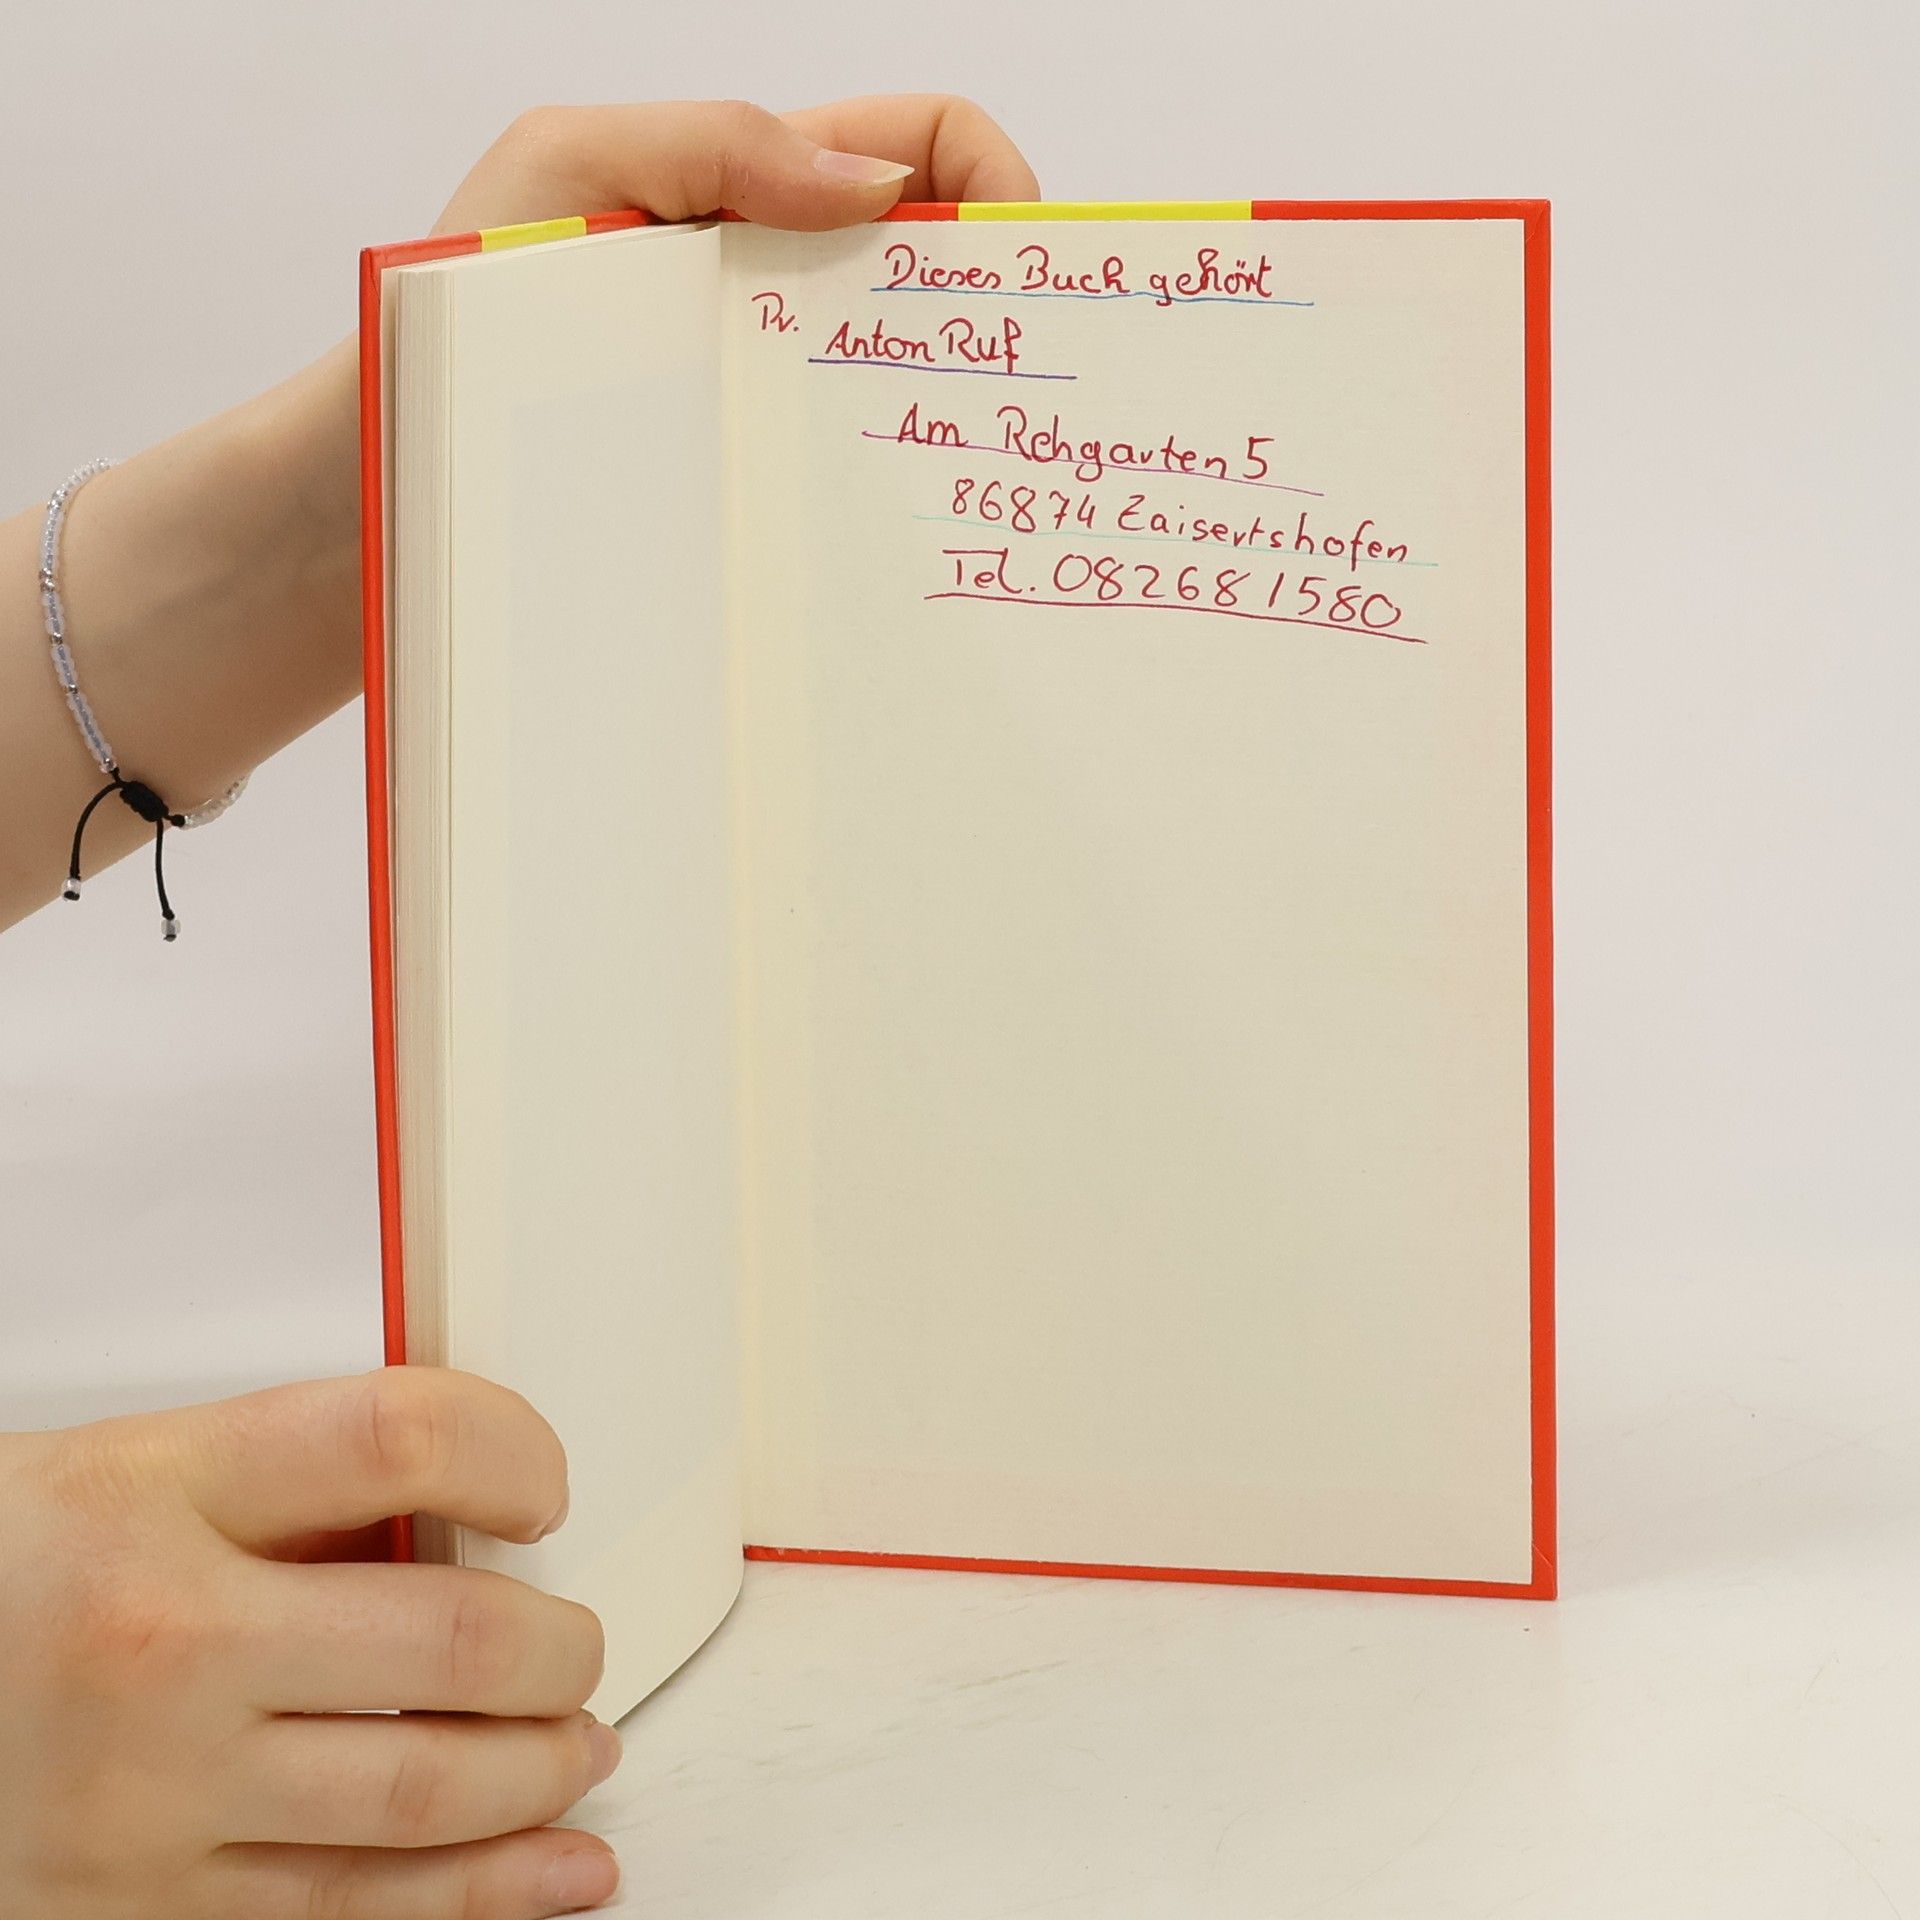 Dieses Buch gehört
Anton Ruf
Am Rehgarten 5
86874 Zaisertshofen
Tel. 082681580